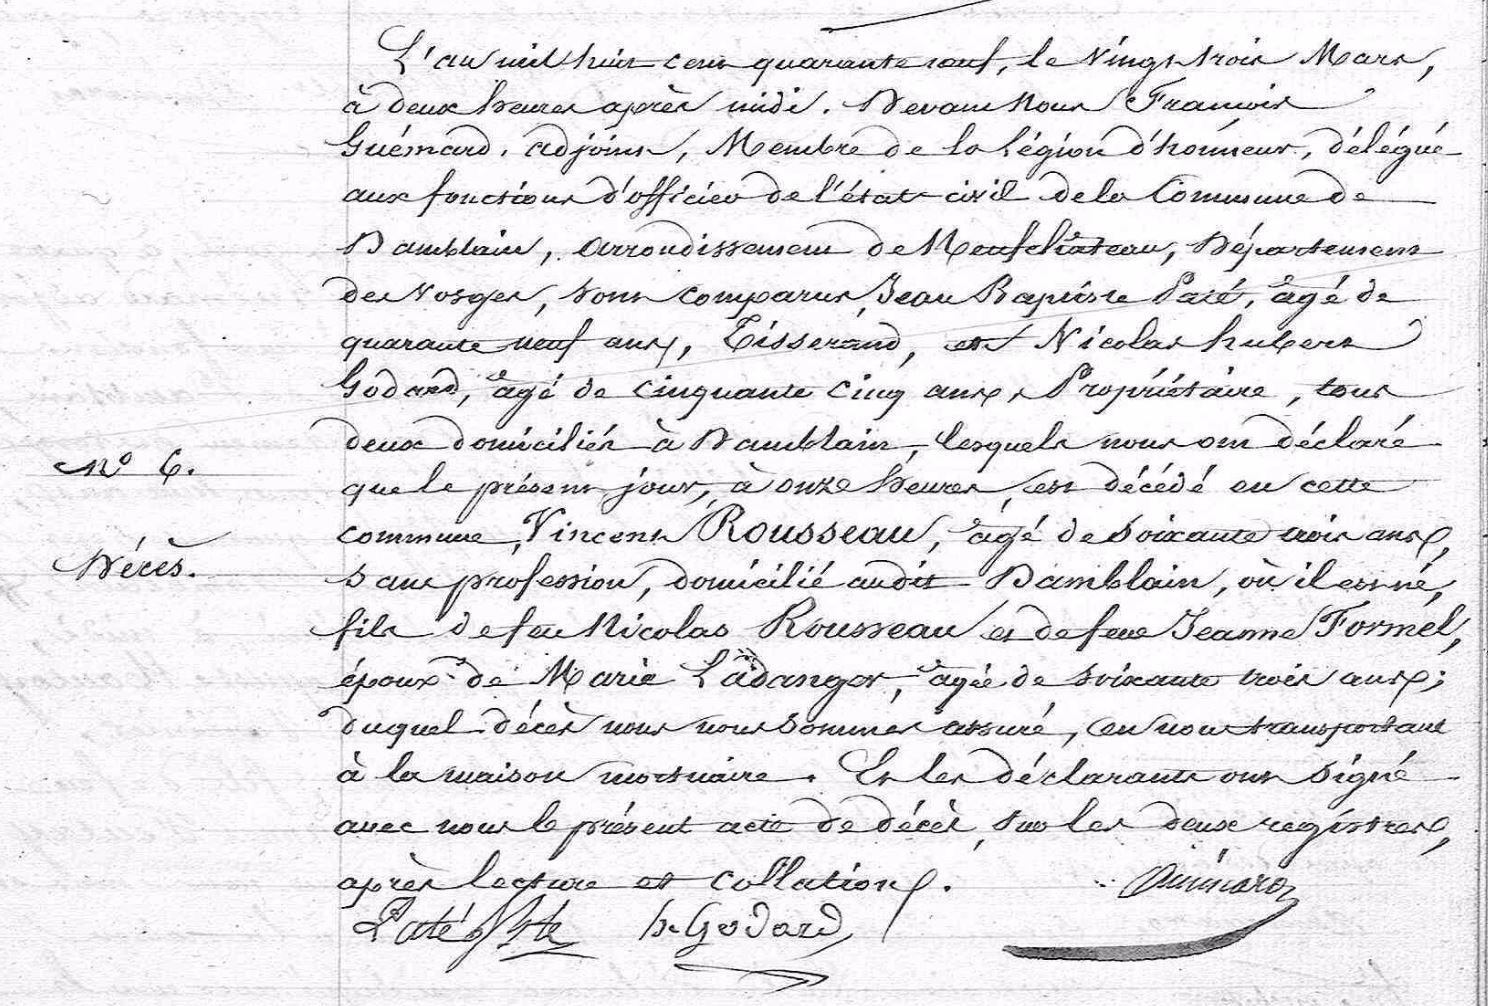 L'an mil huit cent quarante neuf, le vingt trois Mars,
à deux heures après midi. Devant Nous François
Guémard, adjoint, Membre de la Légion d'honneur, délégué
aux fonctions d'officier de l'état civil de la Commune de
Damblain, arrondissement de Neufchâteau, Département
des Vosges, sont comparus, Jean Baptiste Paté, âgé de
quarante neuf ans, Tisserand, et Nicolas hubert
Godard, âgé de cinquante cinq ans, Propriétaire, tous
deux domiciliés à Damblain, lesquels nous ont déclaré
No 6.
que le présent jour, à onze heures, est décédé en cette
commune, Vincent Rousseau, âgé de soixante trois ans,
Décès.
sans profession, domicilié audit Damblain, où il est né,
fils de feu Nicolas Rousseau et de feue Jeanne Formel,
époux de Marie Ladanger, âgée de soixante trois ans;
duquel décès nous nous sommes assuré, en nous transportant
à la maison mortuaire. Et les déclarants ont signé
avec nous le présent acte de décès, sur les deux registres,
après lecture et collation.
Guémard
Paté h Godard